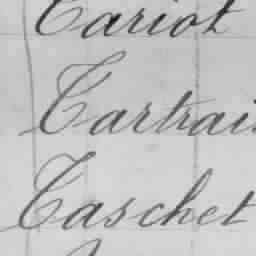 Tariot
Tartrai
Taschet